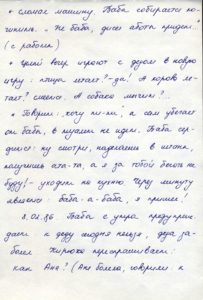 • сломал машину. Баба собирается по-
чинить. „Не баба, диск абота придет..."
(с работы)
• Целый вечер играют с дедом в новую
игру: паша летает? – да! А корова ле-
тает? смеется. А собака
• Говорим: хочу пи-пи, а сам убегает
от бабы, в туалет не идет. Баба сер-
дится: ну смотри, наделаешь в штаны,
получишь ата-та, а я за тобой бегать не
буду! – уходит на кухню. Через минуту
является: баба-а-баба, я пришел!
8.01.86 Баба с утра предупреж-
дает: к деду сегодня нельзя, деда за-
болел переспрашивает:
как Аня? (Аня болела, говорили: к